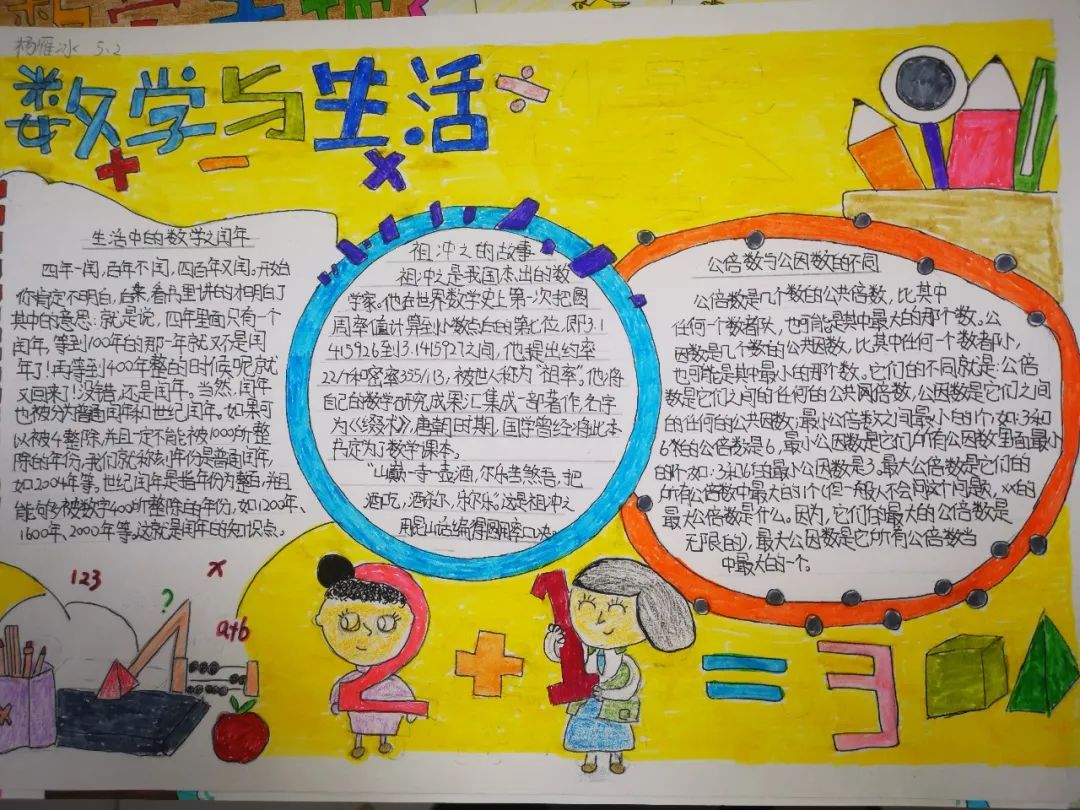 杨雁冰 5.2
数学与生活
生活中的数学之闰年
四年一闰,百年不闰,四百年又闰。开始
你肯定不明白,后来,看书里讲的才明白了
其中的意思:就是说,四年里面只有一个
闰年,等到100年的那一年就又不是闰
年了!再等到400年整的时候呢,就
又回来了!没错,还是闰年。当然,闰年
也被分为普通闰年和世纪闰年。如果可
以被4整除,并且一定不能被100所整
除的年份,我们就称该年份是普通闰年,
如2004年等。世纪闰年是指年份为整百,并且
能够被数字400所整除的年份,如1200年、
1600年、2000年等。这就是闰年的知识点。
祖冲之的故事
祖冲之是我国杰出的数
学家。他在世界数学史上第一次把圆
周率值计算到小数点后的第七位,即3.1
415926到3.1415927之间,他提出约率
22/7和密率355/113,被世人称为“祖率”。他将
自己的数学研究成果汇集成一部著作,名字
为《缀术》,唐朝时期,国学曾经将此本
书定为了数学课本。
“山巅一寺一壶酒,尔乐苦煞吾,把
酒吃,酒杀尔,杀不死,乐尔乐”。这是祖冲之
公倍数与公因数的不同
公倍数是几个数的公共倍数,比其中
任何一个数都大,也可能是其中最大的那个数。公
因数是几个数的公共因数,比其中任何一个数都小,
也可能是其中最小的那个数。它们的不同就是:公倍
数是它们之间的任何的公共同倍数,公因数是它们之间
的任何的公共因数;最小公倍数之间最小的1个,如:3和
6的公倍数是6,最小公因数是它们所有公因数里面最小
的1个,如:3和6的最小公因数是3。最大公倍数是它们的
所有公倍数中最大的1个(但一般人不会问这个问题,XX的
最大公倍数是什么。因为,它们的最大的公倍数是
无限的),最大公因数是它所有公倍数当
中最大的一个。
123
?
x
a+b
2+1=3